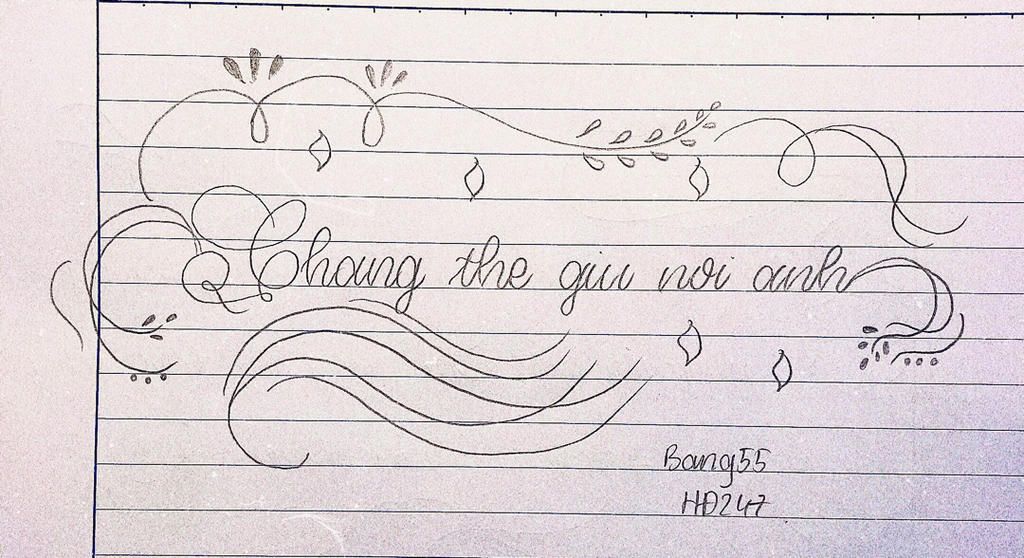 Chang the giu noi anh
Bang55
HĐ247